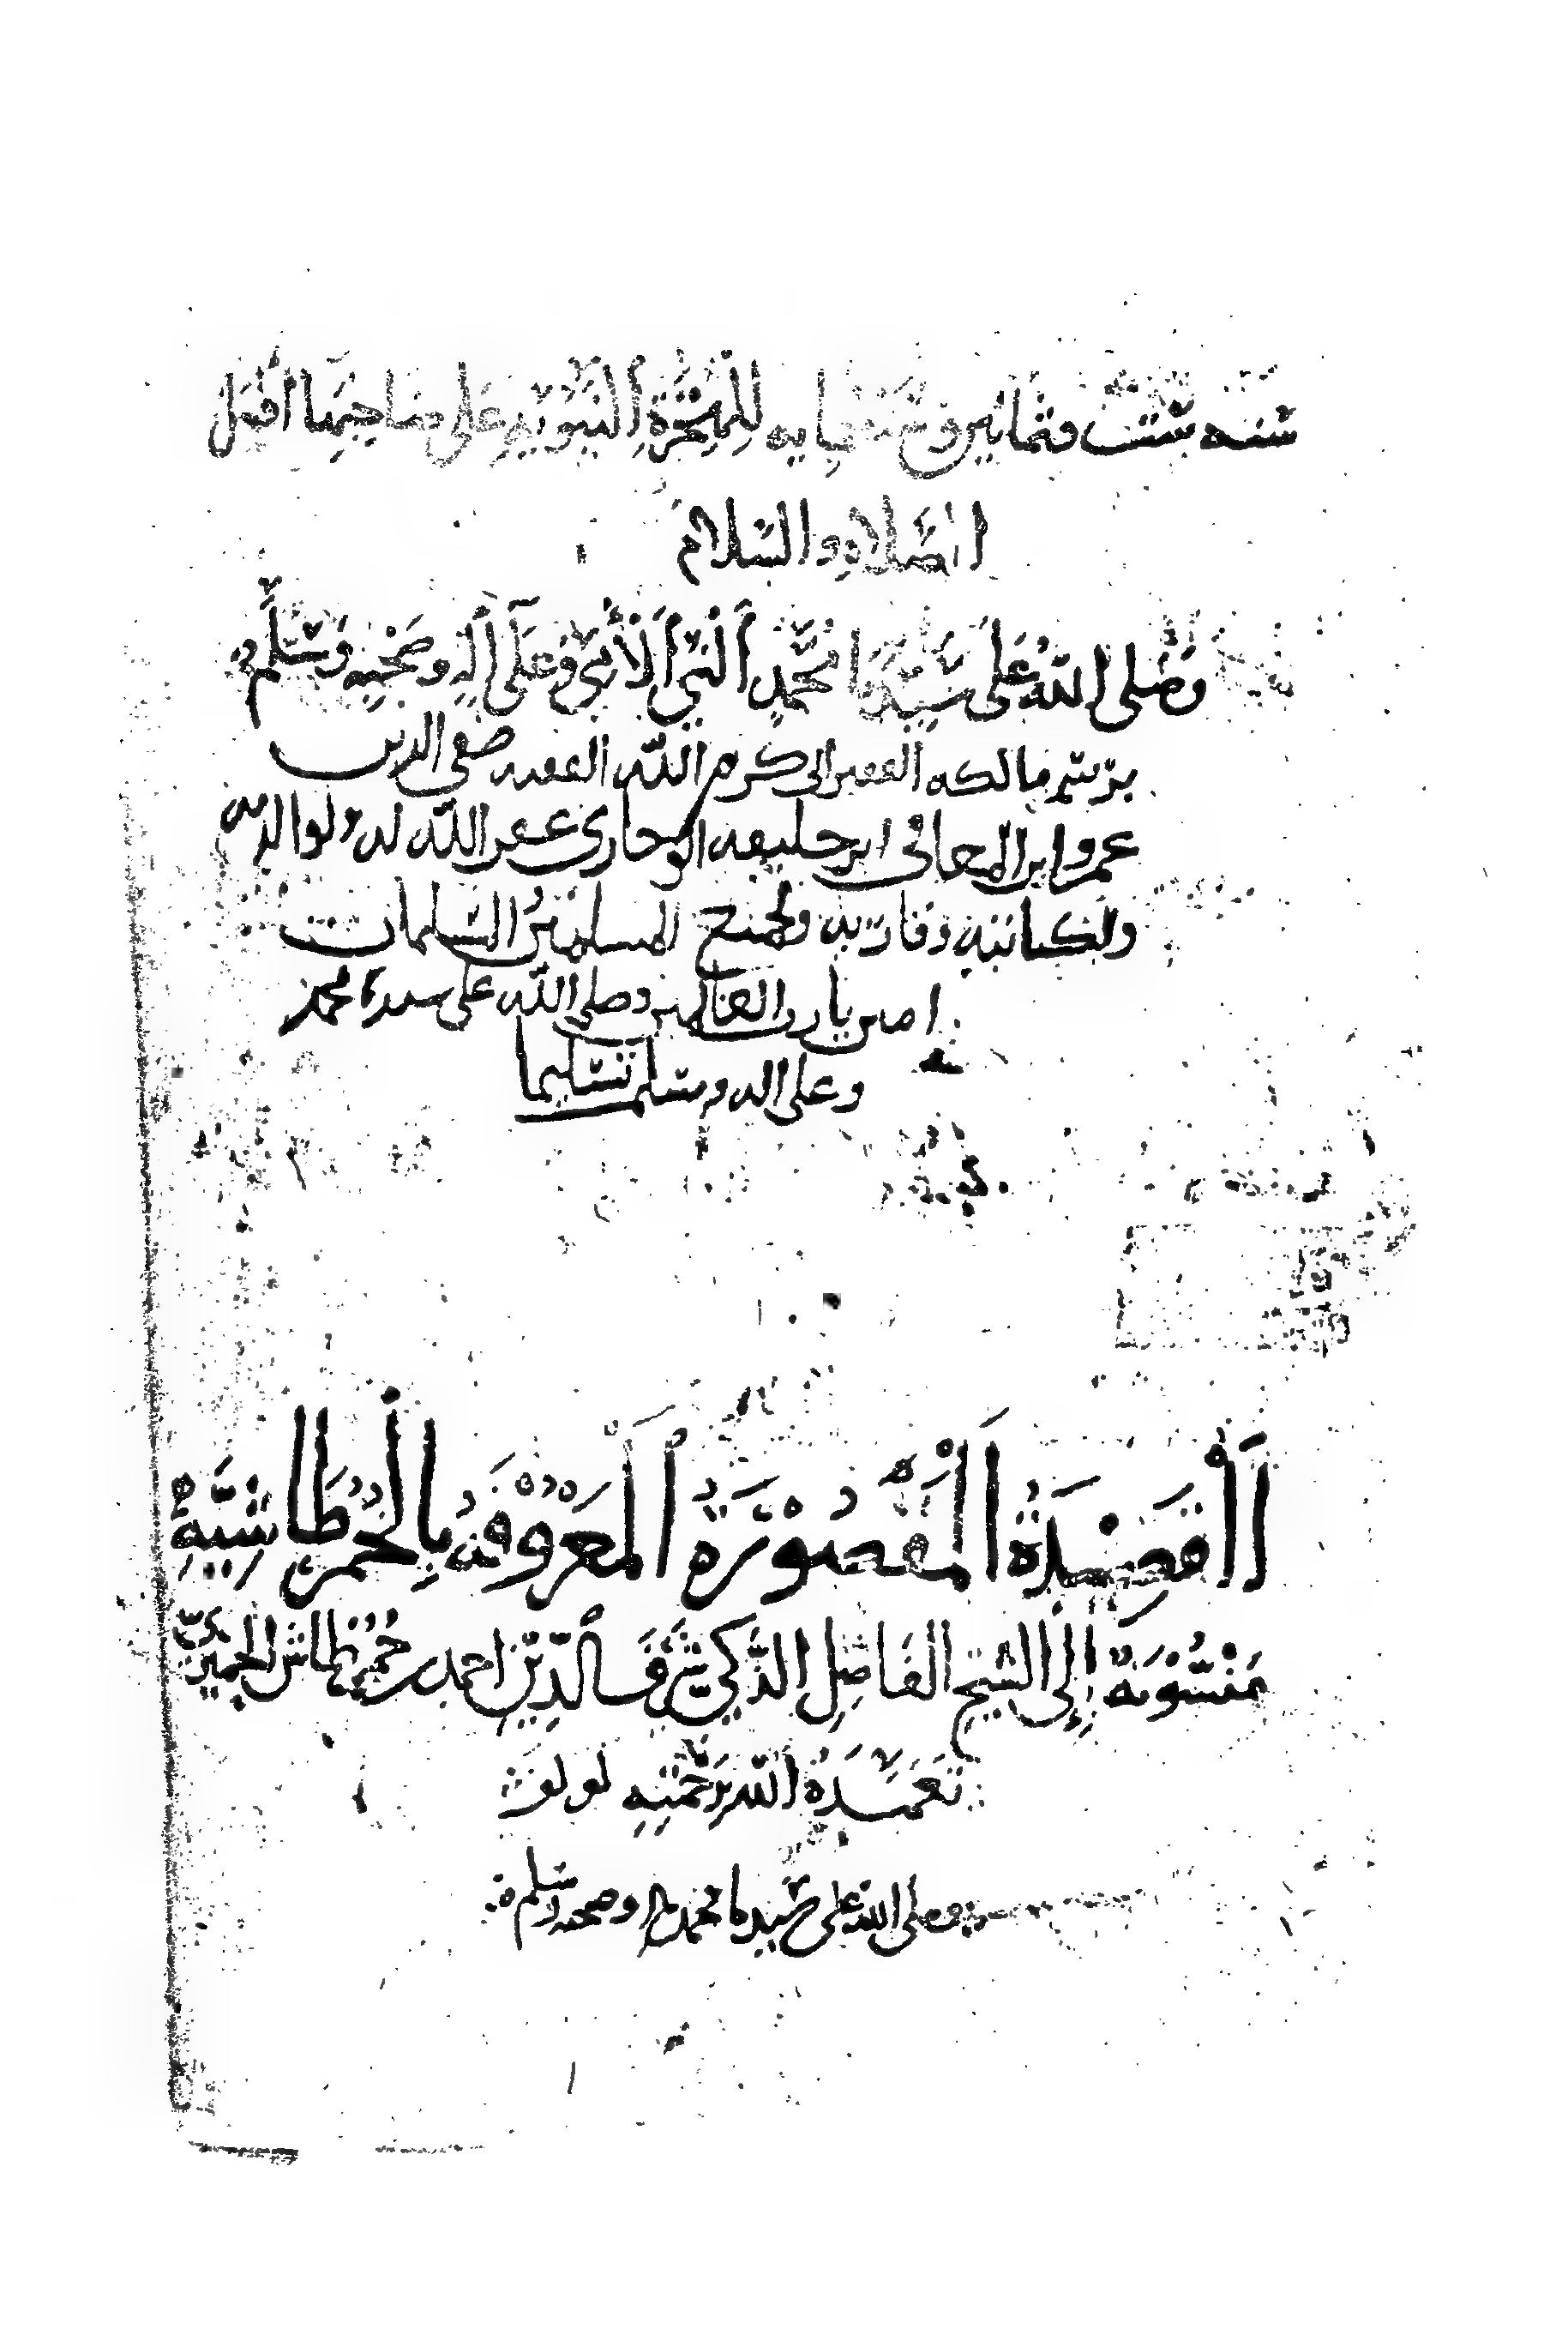 سنه ست وثمانين وسبعمايه للهجرة النبويه على صاحبها أفضل
الصلاه والسلام
وصلى الله على سيدنا محمد النبي الأمي وعلى آله وصحبه وسلم
برسم مالكه الفقير الى كرم الله الفقيه صفي الدين
عمرو ابن المعافى ابن خليفه غفر الله له ولوالديه
ولكاتبه وقاريه ولجميع المسلمين والمسلمات
امين يا رب العالمين وصلى الله على سيدنا محمد
وعلى اله وسلم تسليما
القصيدة المقصورة المعروفة بالخمرطاشية
منسوبة إلى الشيخ الفاضل الذكي شرف الدين احمد بن خمرطاش الحميري
تغمده الله برحمته
وصلى الله على سيدنا محمد واله وصحبه وسلم